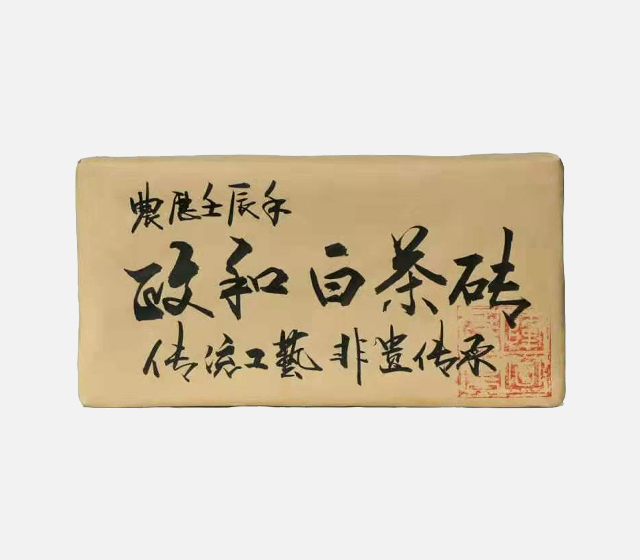 農历壬辰年
政和白茶砖
传流工藝 非遗传承